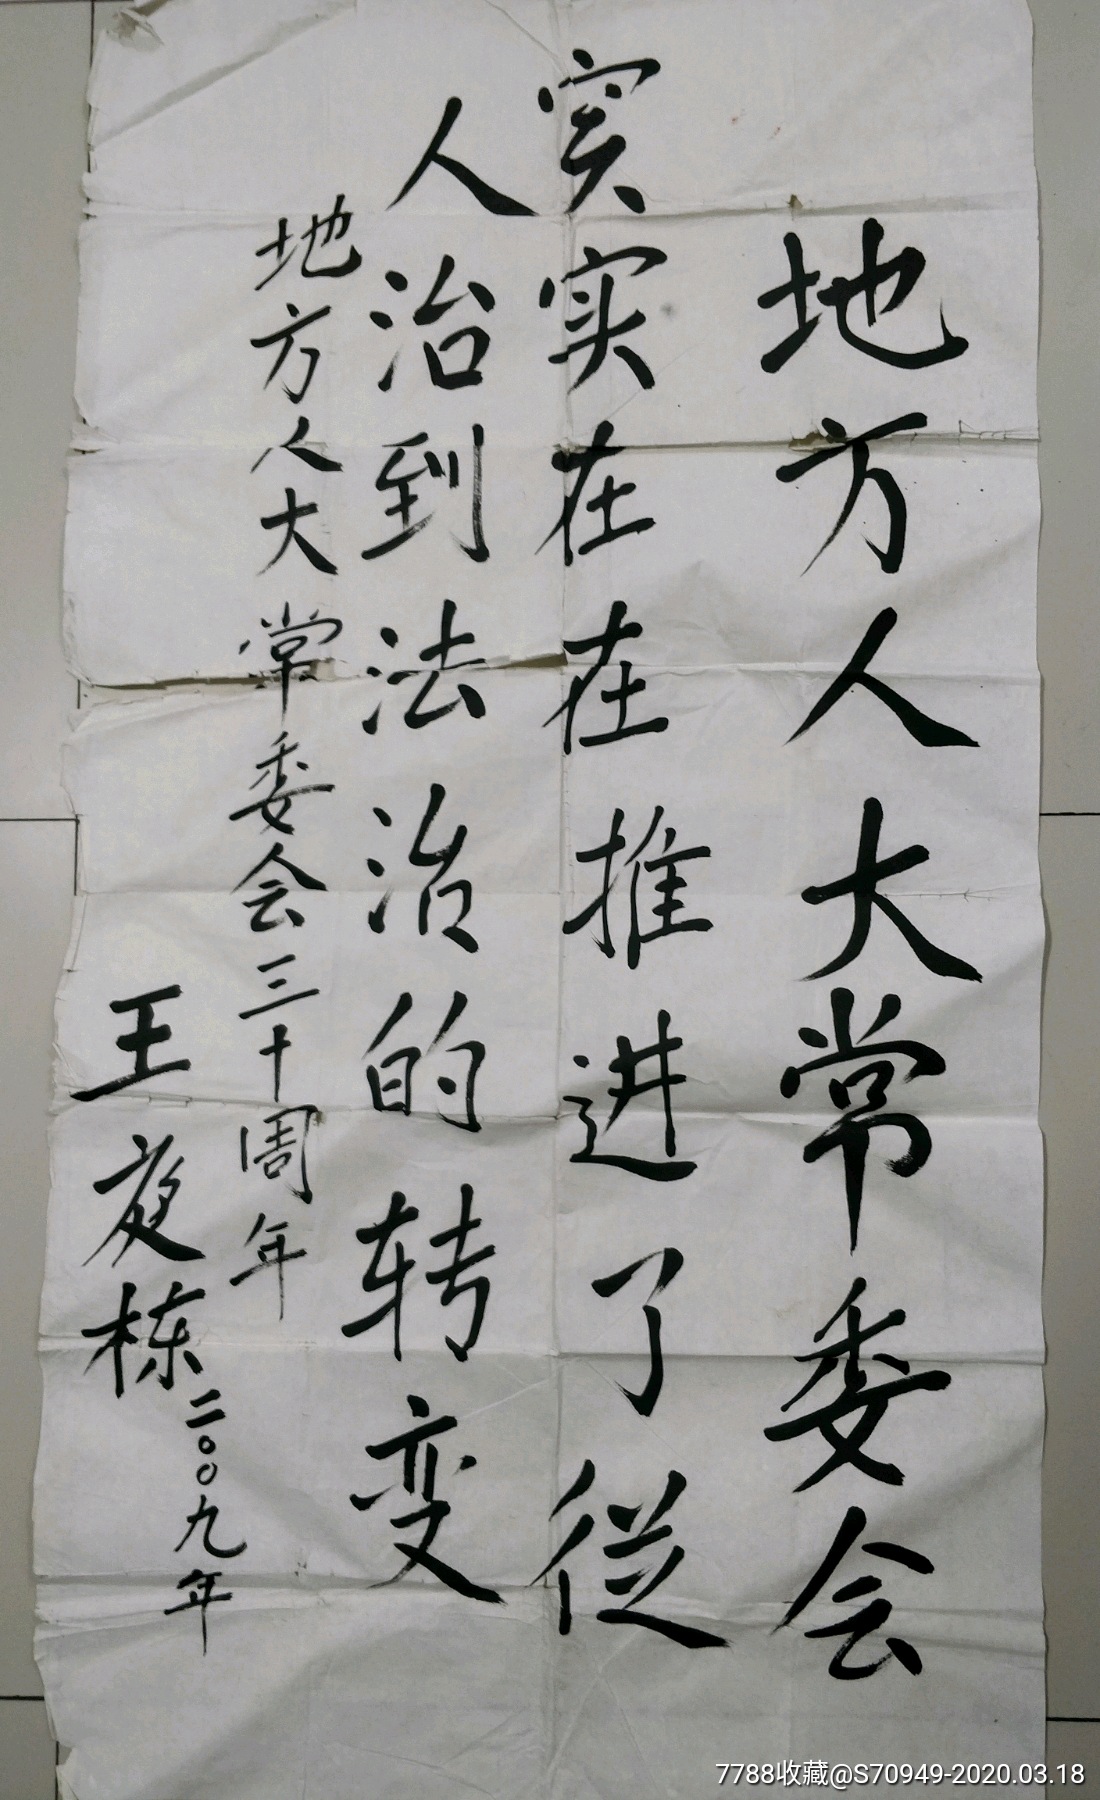 地方人大常委会
实实在在推进了从
人治到法治的转变
地方人大常委会三十周年
王庭栋
二〇〇九年
7788收藏@S70949-2020.03.18